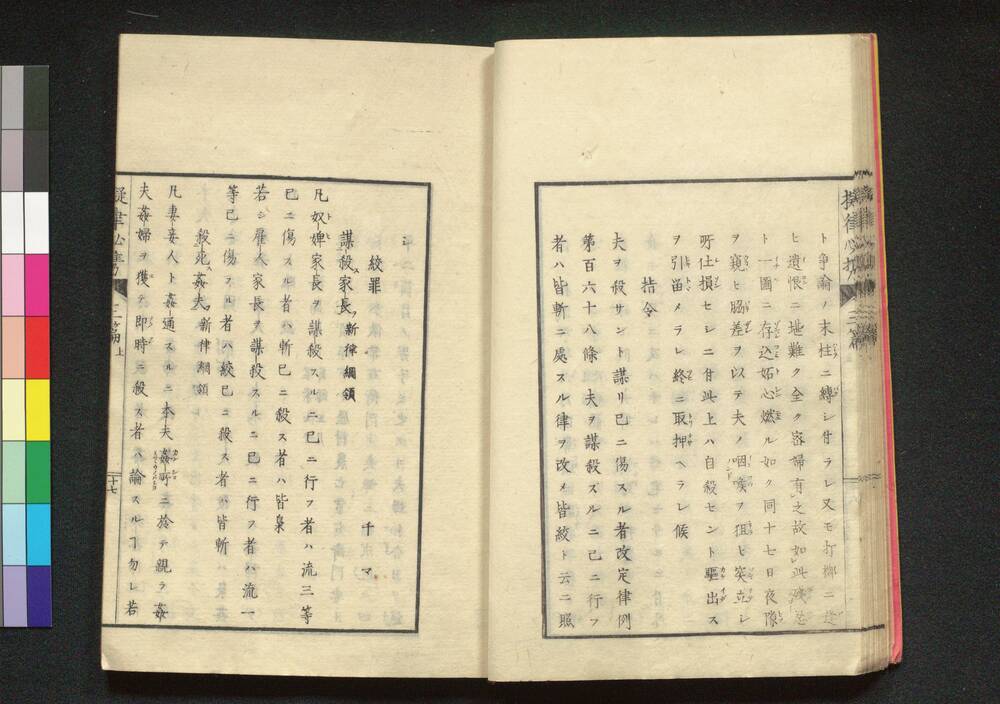 ト爭論ノ末柱ニ縛シ付ラレ又モ打擲ニ逢
ヒ遺恨ニ堪難ク全ク密婦有之故如此残忍
ト一圖ニ存込妬心燃ルゝ如ク同十七日夜隙
ヲ窺ヒ脇差ヲ以テ夫ノ咽喉ヲ狙ヒ突立シ
所仕損セシニ付此上ハ自殺セント驅出ス
ヲ引留メラレ終ニ取押ヘラレ候
指令
夫ヲ殺サント謀リ已ニ傷スル者改定律例
第百六十八條 夫ヲ謀殺スルニ已ニ行フ
者ハ皆斬ニ處スル律ヲ改メ皆絞ト云ニ照
シ
絞罪 千マ
謀殺家長 新律綱領
凡奴婢家長ヲ謀殺スルニ已ニ行フ者ハ流三等
已ニ傷スル者ハ斬已ニ殺ス者ハ皆梟
若シ雇人家長ヲ謀殺スルニ已ニ行フ者ハ流一
等已ニ傷スル者ハ絞已ニ殺ス者ハ皆斬
殺死姦夫 新律綱領
凡妻妾人ト姦通スルニ本夫姦所ニ於テ親ラ姦
夫姦婦ヲ獲テ即時ニ殺ス者ハ論スルヿ勿レ若
擬律必携 三篇上 二十七